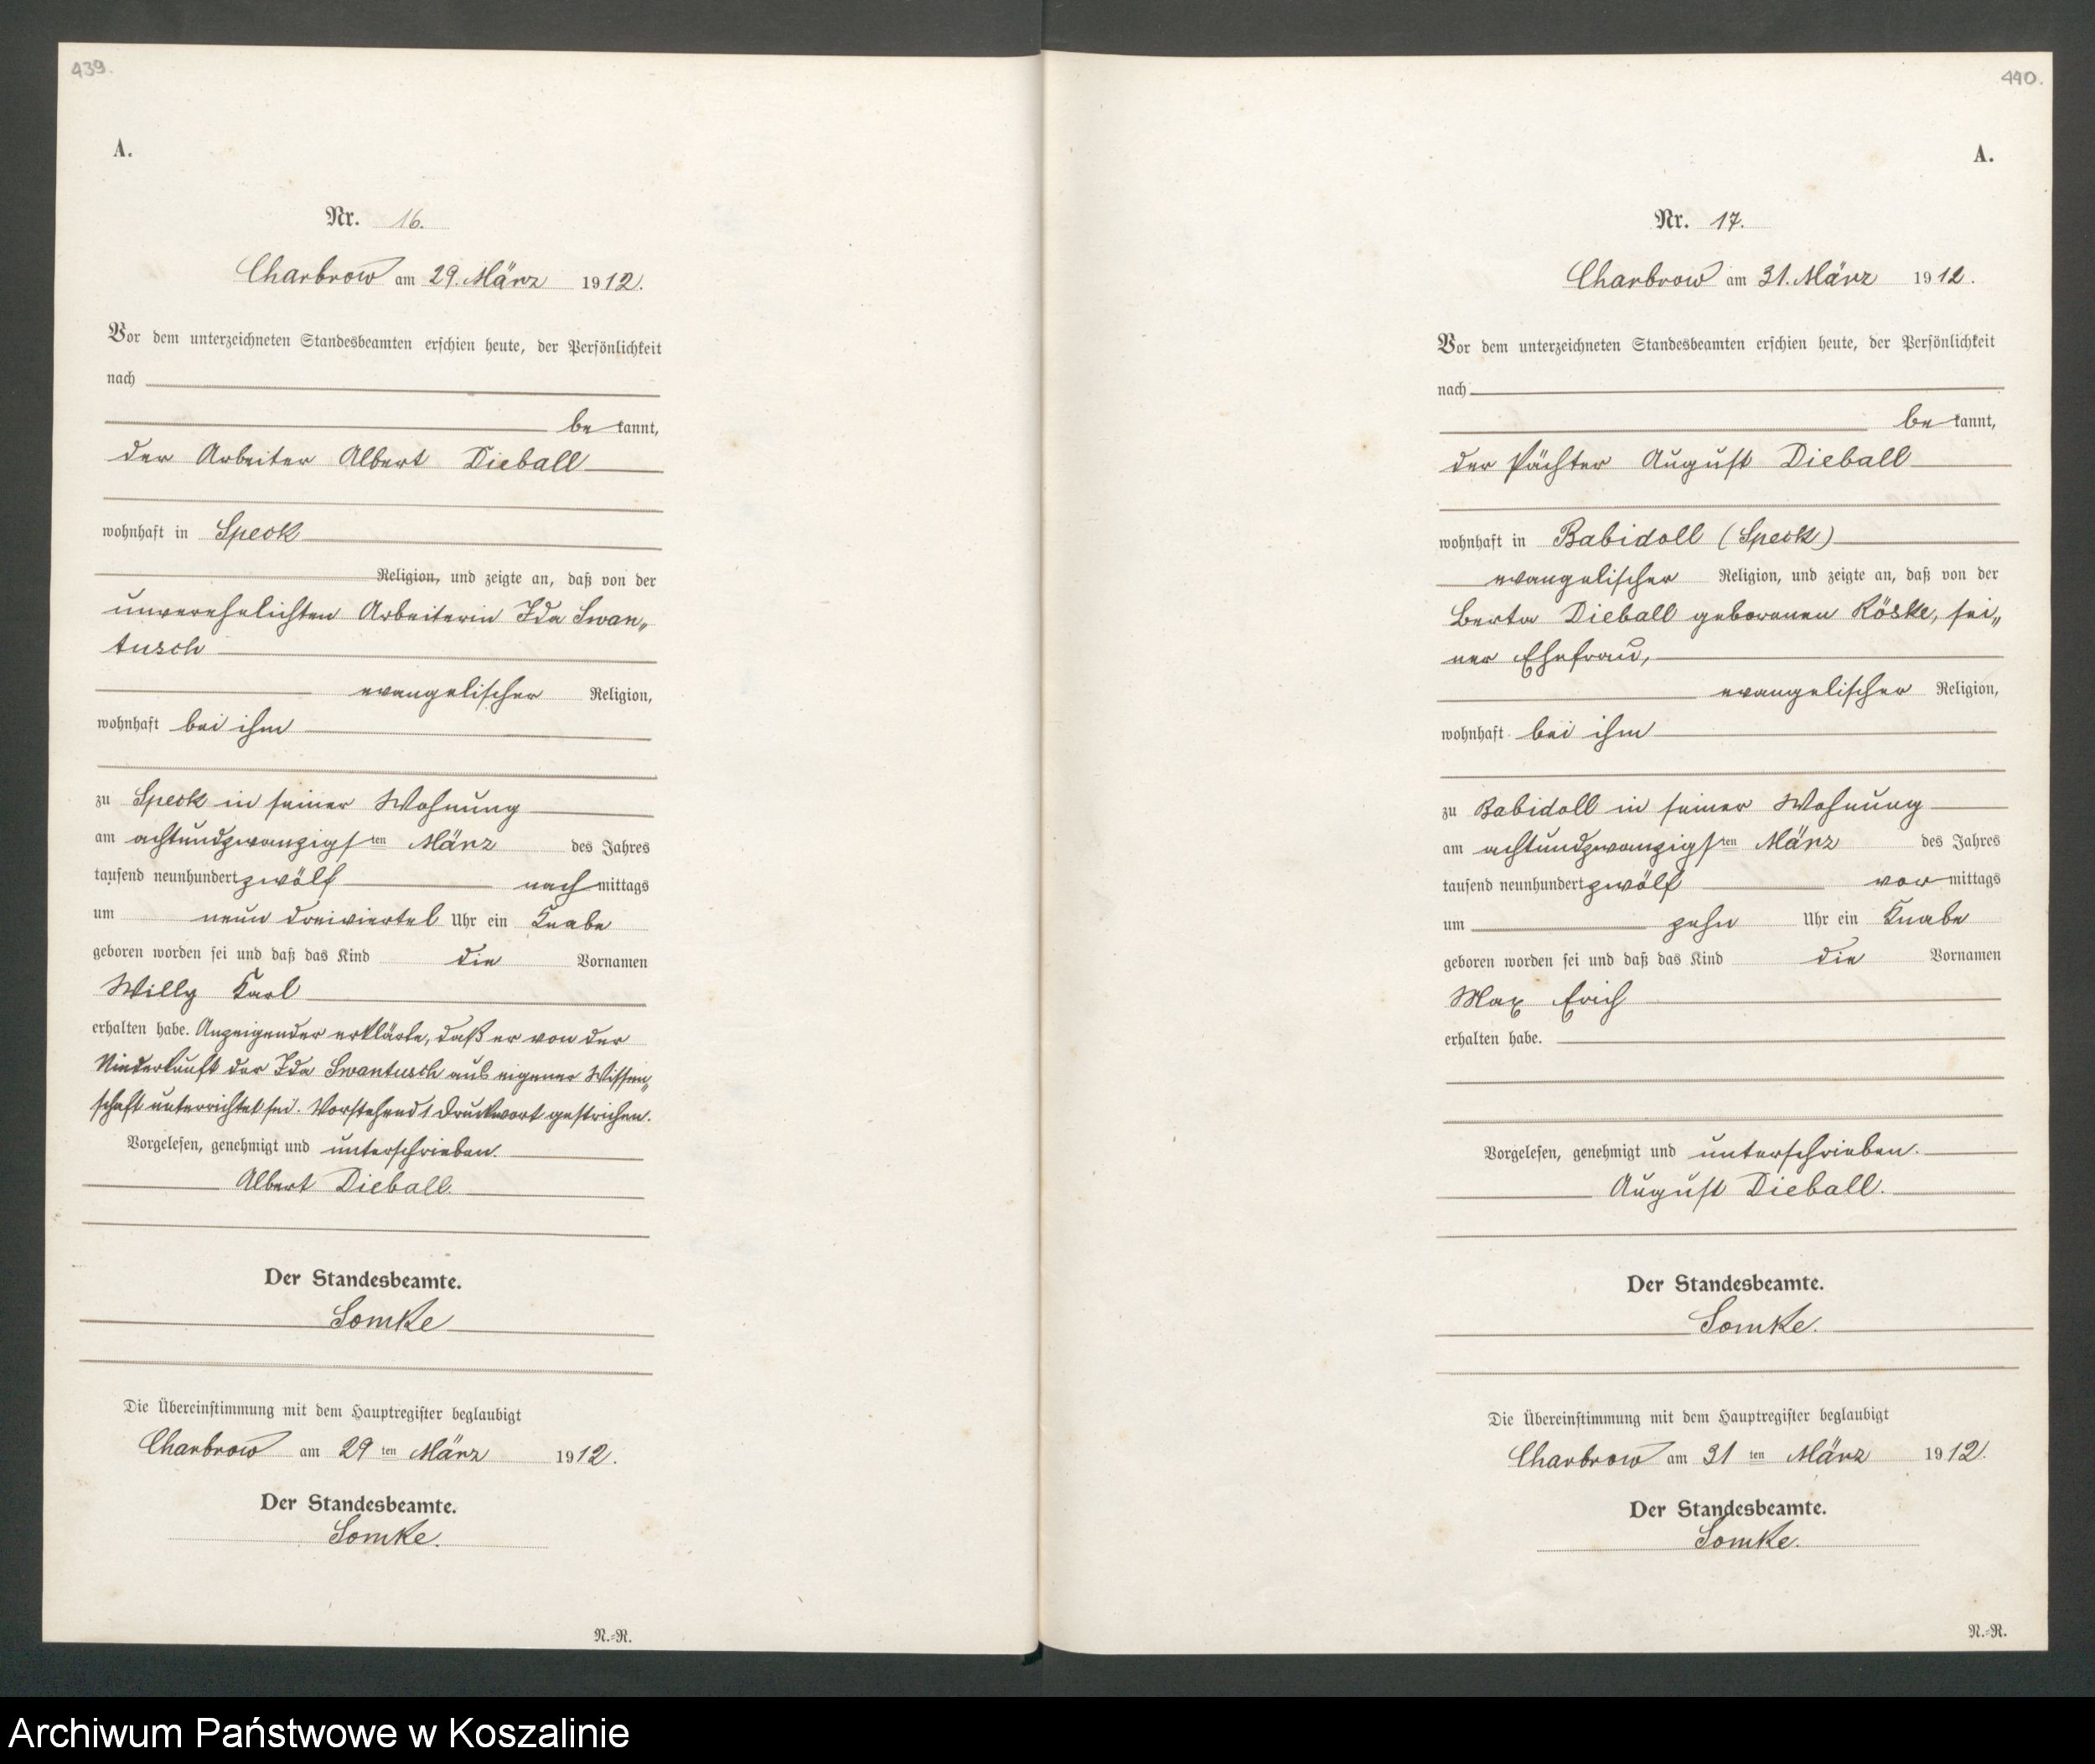 439.
A.
Nr. 16.
Charbrow am 29. März 1912.
Vor dem unterzeichneten Standesbeamten erschien heute, der Persönlichkeit
nach
be kannt,
der Arbeiter Albert Dieball
wohnhaft in Speck
Religion, und zeigte an, daß von der
unverehelichten Arbeiterin Ida Swan„
tusch
evangelischer Religion,
wohnhaft bei ihm
zu Speck in seiner Wohnung
am achtundzwanzigsten März des Jahres
tausend neunhundert zwölf nachmittags
um neun dreiviertel Uhr ein Knabe
geboren worden sei und daß das Kind die Vornamen
Willy Karl
erhalten habe. Anzeigender erklärte, daß er von der
Niederkunft der Ida Swantusch aus eigener Wissen„
schaft unterrichtet sei. Vorstehend 1 Druckwort gestrichen.
Vorgelesen, genehmigt und unterschrieben.
Albert Dieball.
Der Standesbeamte.
Somke
Die Übereinstimmung mit dem Hauptregister beglaubigt
Charbrow am 29 ten März 1912.
Der Standesbeamte.
Somke.
N.=R.
440.
A.
Nr. 17.
Charbrow am 31. März 1912.
Vor dem unterzeichneten Standesbeamten erschien heute, der Persönlichkeit
nach
be kannt,
der Pächter August Dieball
wohnhaft in Babidoll (Speck)
evangelischer Religion, und zeigte an, daß von der
Berta Dieball geborenen Röske, sei„
ner Ehefrau,
evangelischer Religion,
wohnhaft bei ihm
zu Babidoll in seiner Wohnung
am achtundzwanzigsten März des Jahres
tausend neunhundert zwölf vormittags
um zehn Uhr ein Knabe
geboren worden sei und daß das Kind die Vornamen
Max Erich
erhalten habe.
Vorgelesen, genehmigt und unterschrieben.
August Dieball.
Der Standesbeamte.
Somke.
Die Übereinstimmung mit dem Hauptregister beglaubigt
Charbrow am 31 ten März 1912.
Der Standesbeamte.
Somke.
N.=R.
Archiwum Państwowe w Koszalinie